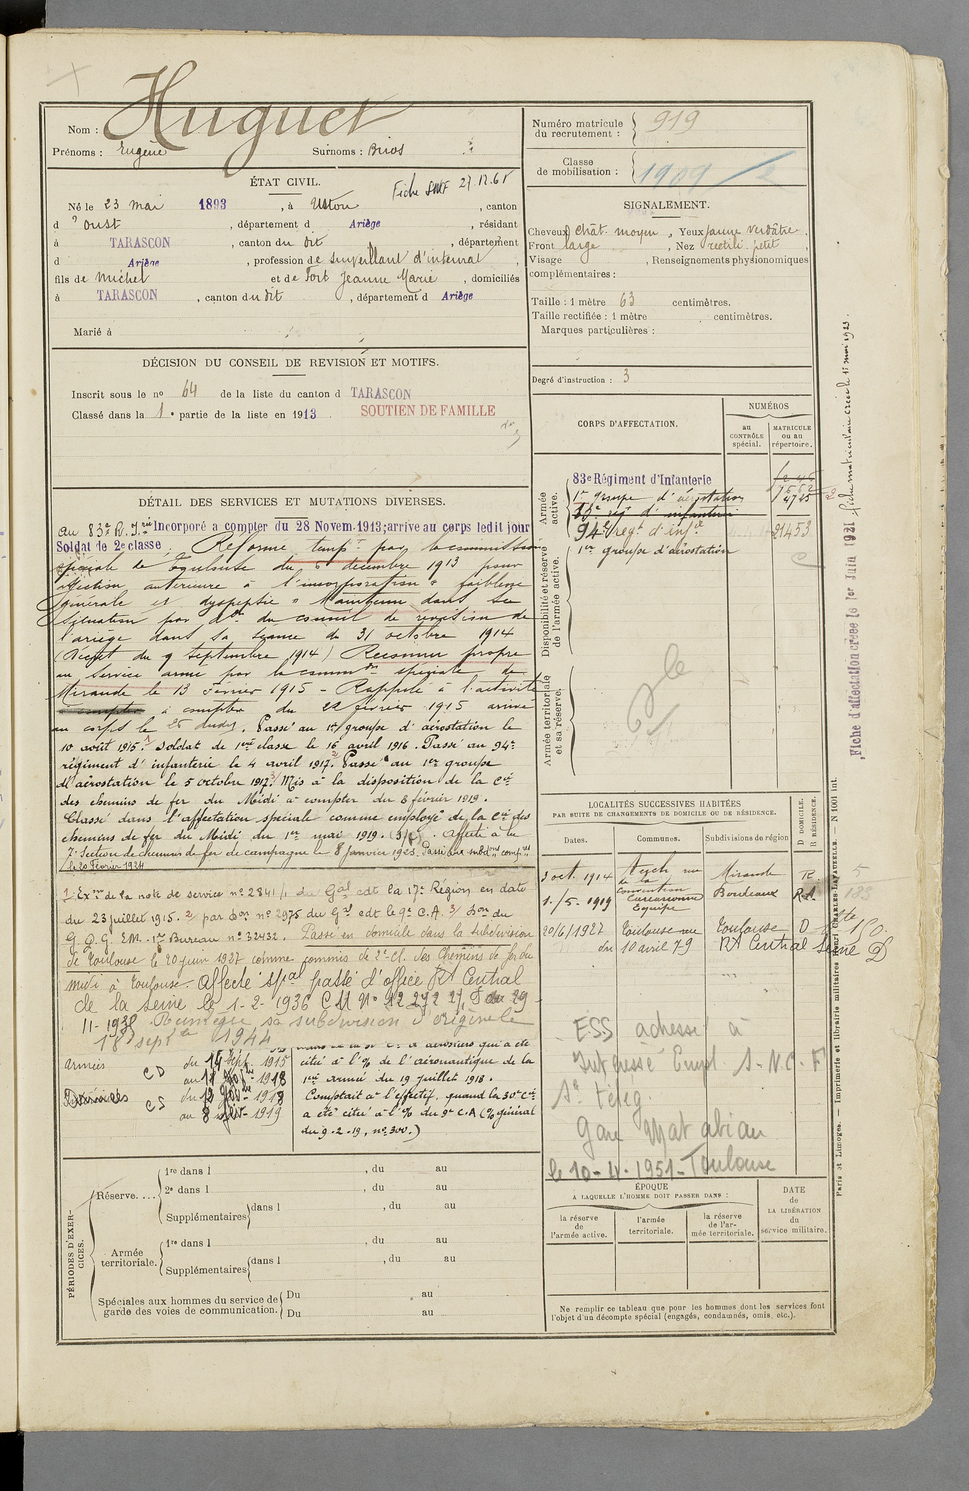 Nom : Huguet
Prénoms : Eugène Surnoms : Brios
ÉTAT CIVIL.
Fiche SNCF 27.12.61
Né le 23 mai 1893, à Ustou, canton
d'Oust, département d Ariège, résidant
à TARASCON, canton du dit, département
d Ariège, profession de surveillant d'internat
fils de Michel et de Fort Jeanne Marie, domiciliés
à TARASCON, canton du dit, département d Ariège
Marié à
DÉCISION DU CONSEIL DE REVISION ET MOTIFS.
Inscrit sous le no 64 de la liste du canton d TARASCON
Classé dans la 1e partie de la liste en 1913 SOUTIEN DE FAMILLE
DÉTAIL DES SERVICES ET MUTATIONS DIVERSES.
au 83e R. Irie Incorporé à compter du 28 Novem. 1913; arrivé au corps ledit jour
Soldat de 2e classe. Réformé tempre par la commission
spéciale de Toulouse du 6 décembre 1913 pour
affection antérieure à l'incorporation "faiblesse
générale et dyspepsie" Maintenu dans sa
situation par don du conseil de révision de
l'ariège dans sa séance du 31 octobre 1914
(Décret du 9 septembre 1914) Reconnu propre
au service armé par la common spéciale de
Mirande le 13 Février 1915 - Rappelé à l'activité
à compter du 22 février 1915 arrivé
au corps le 25 dudit. Passé au 1er groupe d'aérostation le
10 août 1915. 1/ Soldat de 1ère classe le 16 avril 1916. Passé au 94e
régiment d'infanterie le 4 avril 1917. 2/ Passé au 1er groupe
d'aérostation le 5 octobre 1917. 3/ Mis à la disposition de la Cie
des chemins de fer du Midi à compter du 8 février 1919.
Classé dans l'affectation spéciale comme employé de la Cie des
chemins de fer du Midi du 1er mai 1919. Affecté à la
7e Section de chemins de fer de campagne le 8 janvier 1923. Passé aux subdons
le 20 Février 1924
1/ Exon de la note de service no 2841/1 du Gal cdt la 17e Région en date
du 23 juillet 1915. 2/ par Don no 2975 du Gal cdt le 9e C.A. 3/ Don du
G.Q.G. EM. 1er Bureau no 32432. Passé en domicile dans la subdivision
de Toulouse le 20 juin 1927 comme commis de 2e cl. des Chemins de fer du
Midi à Toulouse. Affecté spal passé d'office RA Central
de la Seine le 1-2-1936
11-1938. Réintégré sa subdivision d'origine le
18 septbre 1944
Armées CD du 14 Sept. 1915
au 11 1918
CS du 12 1918
au 8 1919
cité à l'% de l'aéronautique de la
1ère armée du 19 juillet 1918.
Comptait à l'effectif, quand la 30e Cie
a été citée à l'% du 9e C.A (% général
du 9.2.19, no 300.)
PÉRIODES D'EXERCICES.
Réserve....
1re dans l , du au
2e dans l , du au
Supplémentaires dans l , du au
Armée territoriale.
1re dans l , du au
Supplémentaires dans l , du au
Spéciales aux hommes du service de garde des voies de communication.
Du au
Du au
Numéro matricule du recrutement : 919
Classe de mobilisation : 1909 /2
SIGNALEMENT.
Cheveux chât. moyen, Yeux jaune verdâtre.
Front large, Nez rectil. petit,
Visage , Renseignements physionomiques
complémentaires :
Taille : 1 mètre 63 centimètres.
Taille rectifiée : 1 mètre centimètres.
Marques particulières :
Degré d'instruction : 3
CORPS D'AFFECTATION.
NUMÉROS
au CONTRÔLE spécial.
MATRICULE ou au répertoire.
Armée active.
83e Régiment d'Infanterie
1er groupe d'aérostation
94e regt d'infie 21453
Disponibilité et réserve de l'armée active.
1er groupe d'aérostation
Armée territoriale et sa réserve.
LOCALITÉS SUCCESSIVES HABITÉES
PAR SUITE DE CHANGEMENTS DE DOMICILE OU DE RÉSIDENCE.
Dates. Communes. Subdivisions de région D DOMICILE. R RÉSIDENCE.
3 oct. 1914 Auch rue de la Convention Mirande R.
1./5. 1919 Bordeaux R
20/6/1927 Toulouse rue Toulouse D
du 10 avril 79 RA Central Seine D
ESS adressé à
Intéressé Empl. S.N.C.F
Se Télég.
Gare Matabiau
le 10-4-1951-Toulouse
ÉPOQUE
A LAQUELLE L'HOMME DOIT PASSER DANS :
la réserve de l'armée active.
l'armée territoriale.
la réserve de l'armée territoriale.
DATE de LA LIBÉRATION du service militaire.
Ne remplir ce tableau que pour les hommes dont les services font
l'objet d'un décompte spécial (engagés, condamnés, omis, etc.).
Fiche d'affectation créée le 1er Juin 1921 Fiche matriculaire créée le 15 mai 1923.
Paris et Limoges. — Imprimerie et librairie militaires Henri CHARLES-LAVAUZELLE. — N° 1001 int.